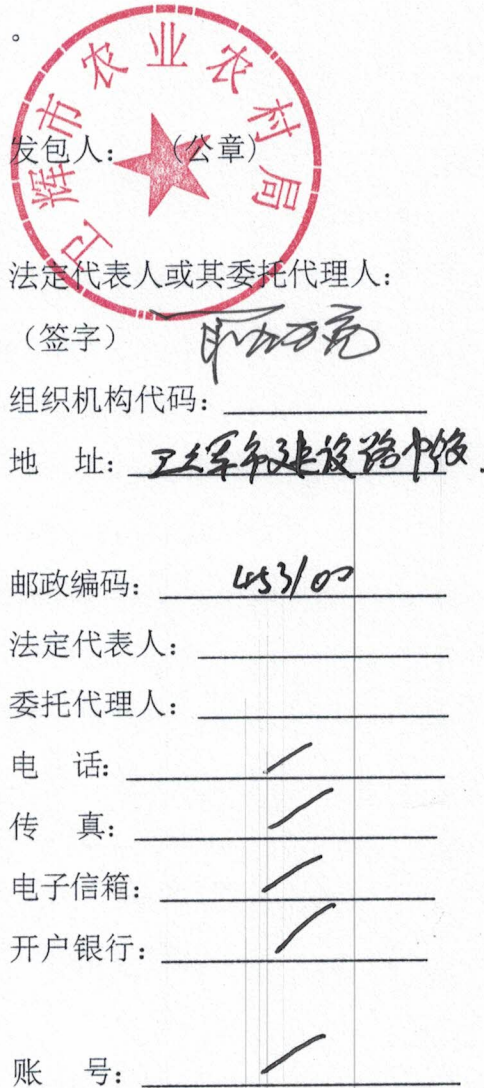 。
卫辉市农业农村局
发包人： （公章）
法定代表人或其委托代理人：
（签字）
组织机构代码：
地 址：卫辉市建设路中段.
邮政编码：453100
法定代表人：
委托代理人：
电 话：/
传 真：/
电子信箱：/
开户银行：/
账 号：/